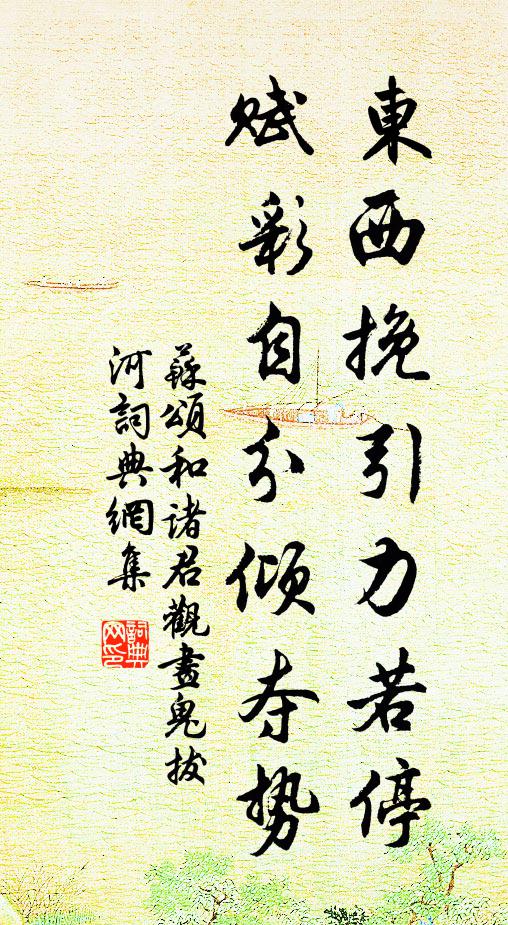 東西挽引力若停
赋彩自分倾夺势
蘇頌和诸君觀畫鬼拔
河詞典網集
詞典
网印